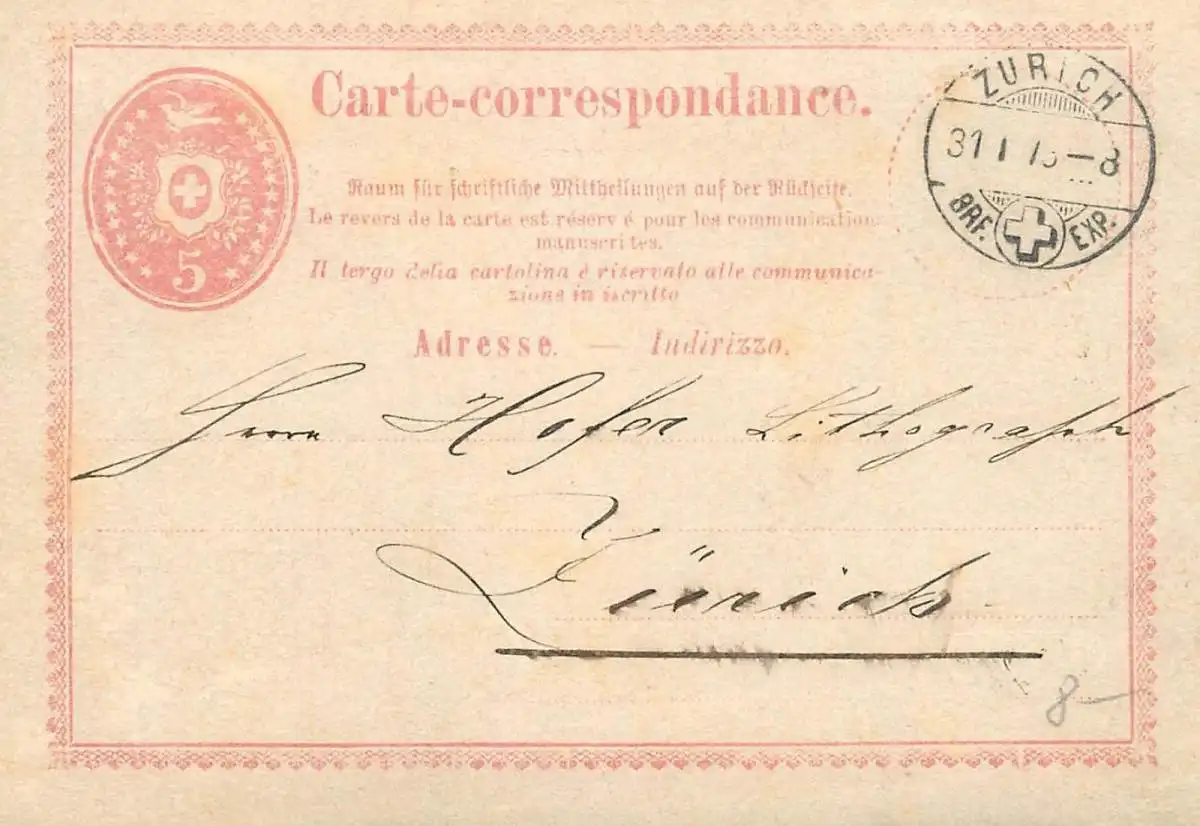 Carte-correspondance.
ZURICH
31 I 7 – 8
BRF. EXP.
5
Raum für schriftliche Mittheilungen auf der Rückseite.
Le revers de la carte est réservé pour les communication
manuscrites.
Il tergo della cartolina è riservato alle communica-
zione in iscritto
Adresse. — Indirizzo.
Herrn Hofer Lithograph
Zürich
8–